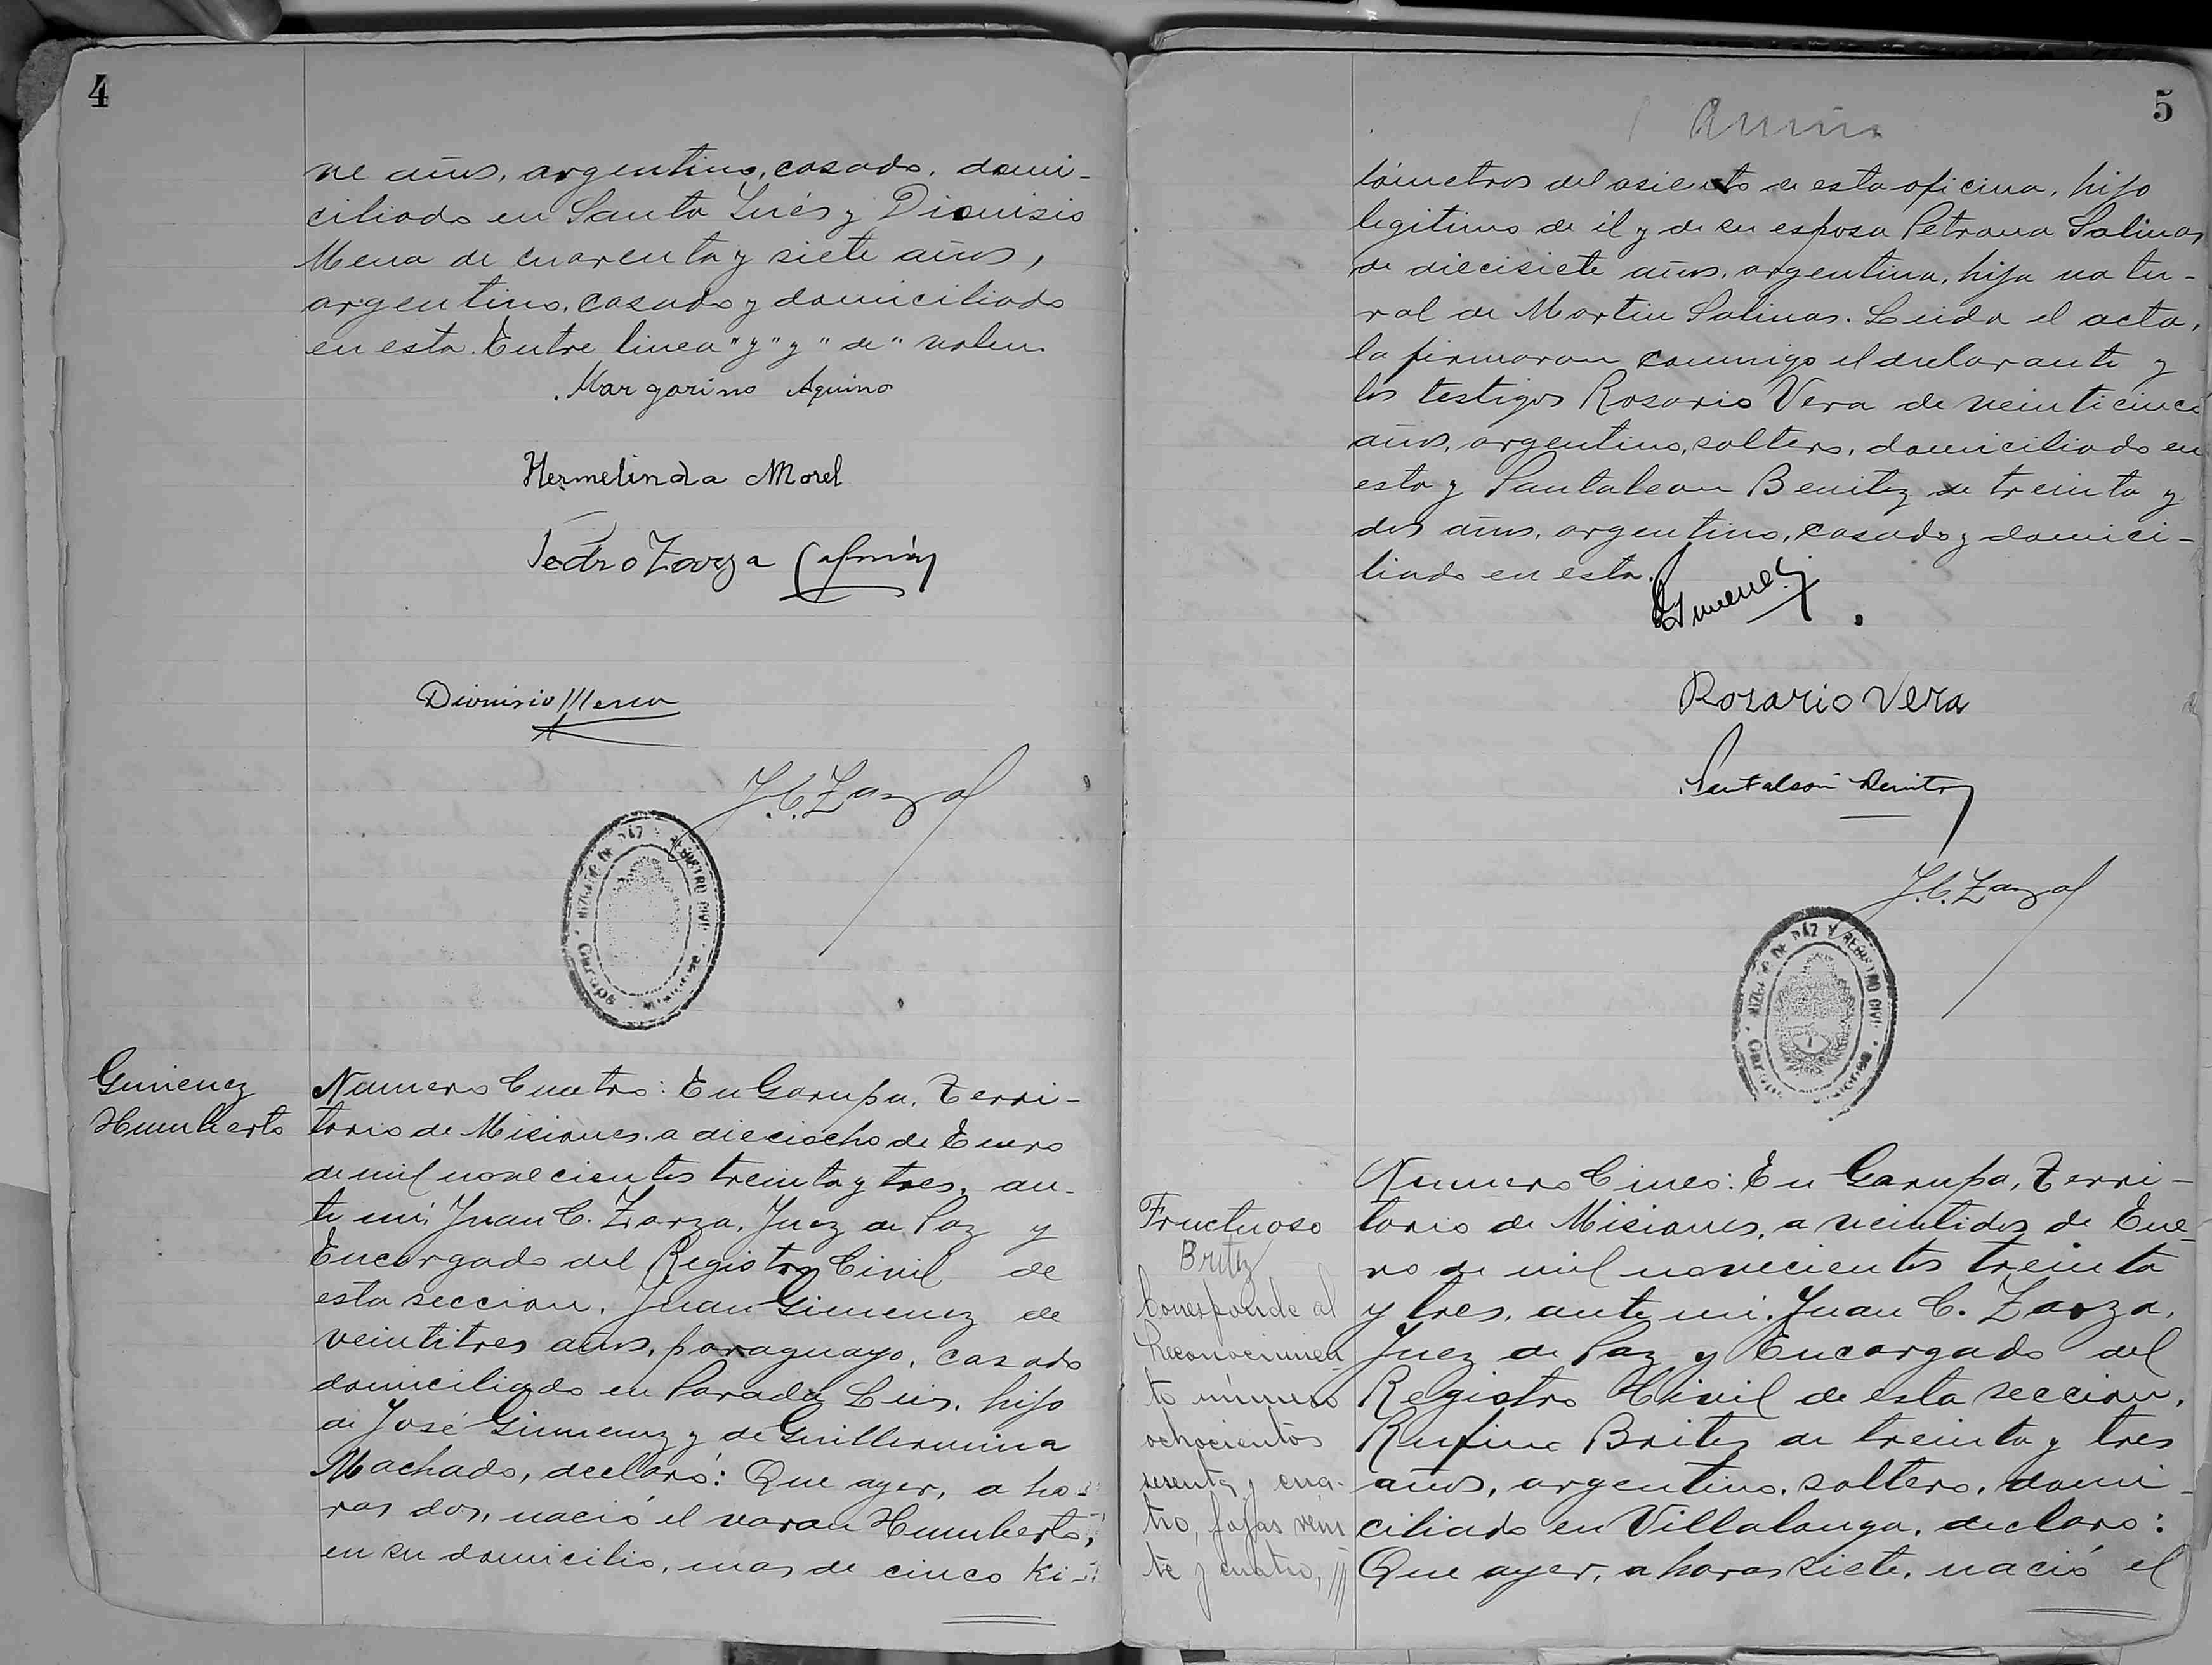 4
ve años, argentino, casado, domi-
ciliado en Santa Inés y Dionisio
Mena de cuarenta y siete años,
argentino, casado y domiciliado
en esta. Entre linea "y" y "de" valen.
Margarino Aquino
Hermelinda Morel
Pedro Zarza
Dionisio Mena
J.C. Zarza
JUZGADO DE PAZ Y REGISTRO CIVIL
Garupá Misiones
Gimenez
Humberto
Numero Cuatro: En Garupa, Terri-
torio de Misiones, a dieciocho de Enero
de mil novecientos treinta y tres, an-
te mi, Juan C. Zarza, Juez de Paz y
Encargado del Registro Civil de
esta seccion, Juan Gimenez de
veintitres años, paraguayo, casado
domiciliado en Parada Leis, hijo
de José Gimenez y de Guillermina
Machado, declaró: Que ayer, a ho-
ras dos, nació el varon Humberto,
en su domicilio, mas de cinco ki-
5
lómetros del asiento de esta oficina, hijo
legitimo de él y de su esposa Petrona Salinas
de diecisiete años, argentina, hija natu-
ral de Martin Salinas. Leida el acta,
la firmaron conmigo el declarante y
los testigos Rosario Vera de veinticinco
años, argentino, soltero, domiciliado en
esta y Pantaleon Benitez de treinta y
dos años, argentino, casado y domici-
liado en esta.
Gimenez
Rosario Vera
Pantaleón Benitez
J.C. Zarza
JUZGADO DE PAZ Y REGISTRO CIVIL
Garupá Misiones
Fructuoso
Britez
Corresponde al
Reconocimien
to número
ochocientos
sesenta y cua-
tro, fojas vein
te y cuatro,
Numero Cinco: En Garupa, Terri-
torio de Misiones, a veintidos de Ene-
ro de mil novecientos treinta
y tres, ante mi, Juan C. Zarza,
Juez de Paz y Encargado del
Registro Civil de esta seccion,
Rufino Britez de treinta y tres
años, argentino, soltero, domi-
ciliado en Villalonga, declaro:
Que ayer, a horas siete, nació el